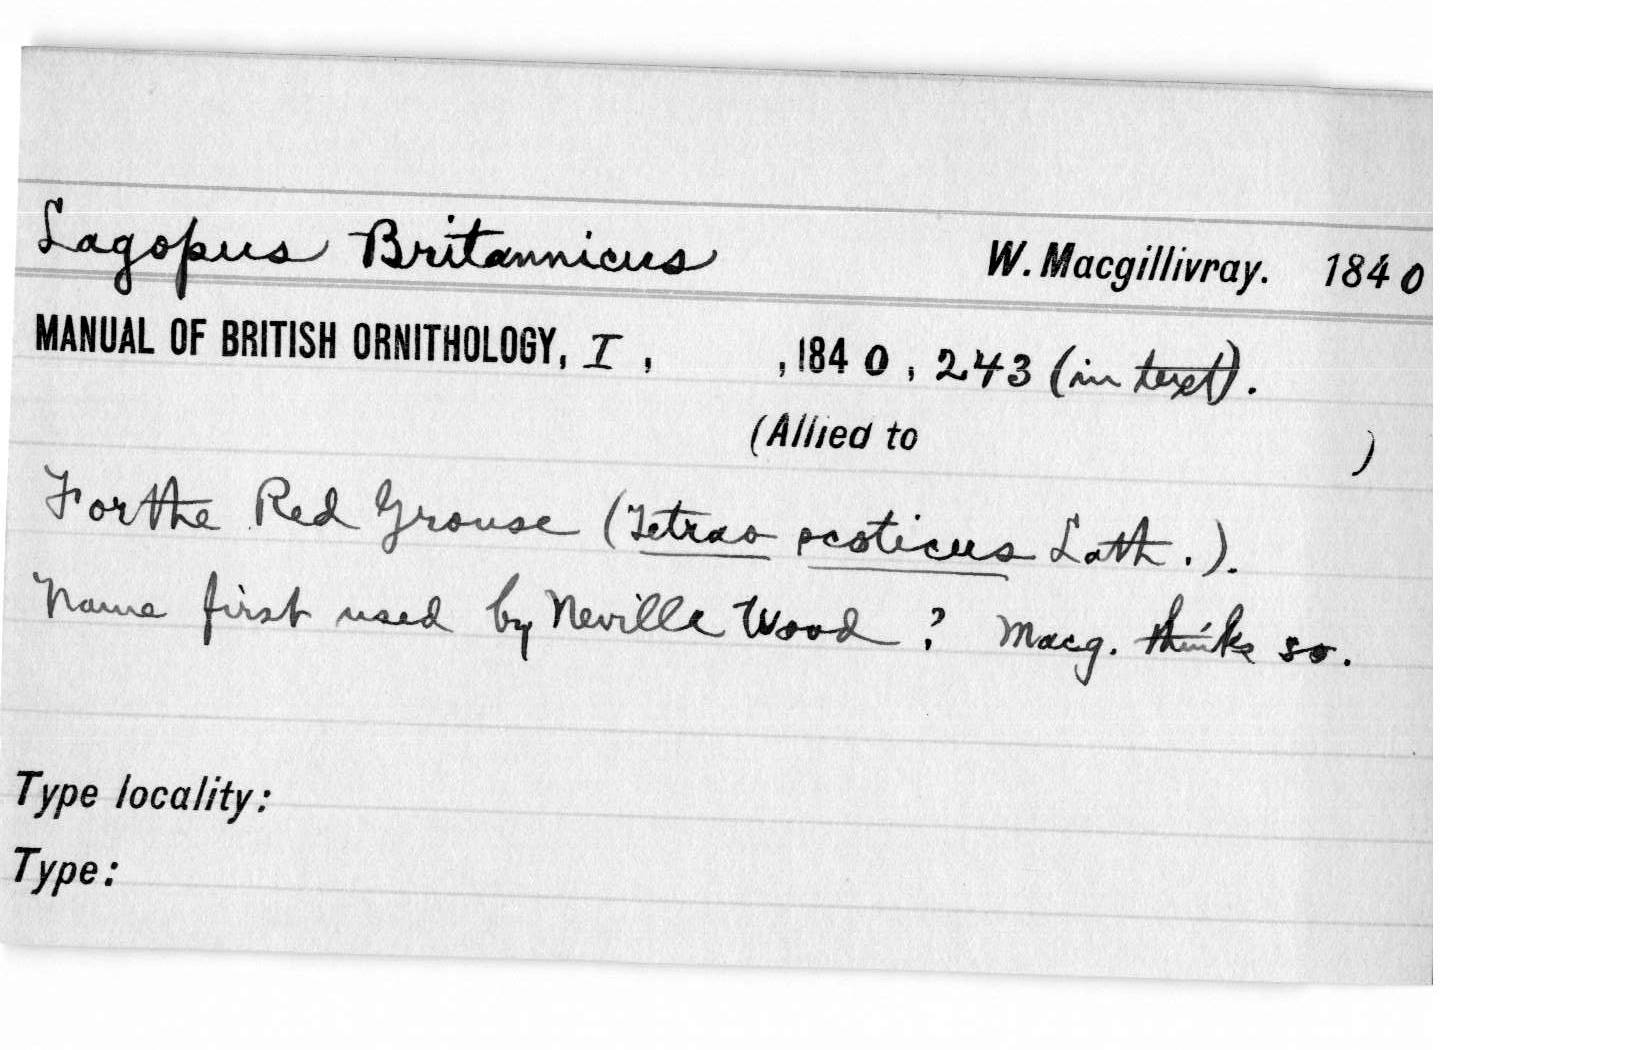 Lagopus Britannicus W. Macgillivray. 1840
MANUAL OF BRITISH ORNITHOLOGY, I, , 1840, 243 (in text).
(Allied to )
For the Red Grouse (Tetrao scoticus Lath.).
Name first used by Neville Wood? Macg. thinks so.
Type locality:
Type: